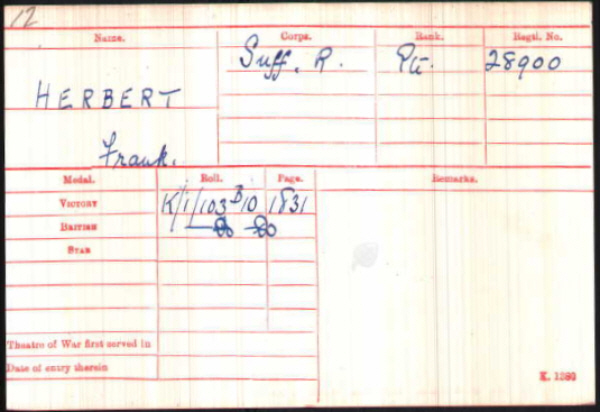 12
Name. Corps. Rank. Regtl. No.
Suff. R. Pte. 28900
HERBERT
Frank.
Medal. Roll. Page. Remarks.
VICTORY K/1/103 B10 1831
BRITISH —Do —Do
STAR
Theatre of War first served in
Date of entry therein
K. 1380